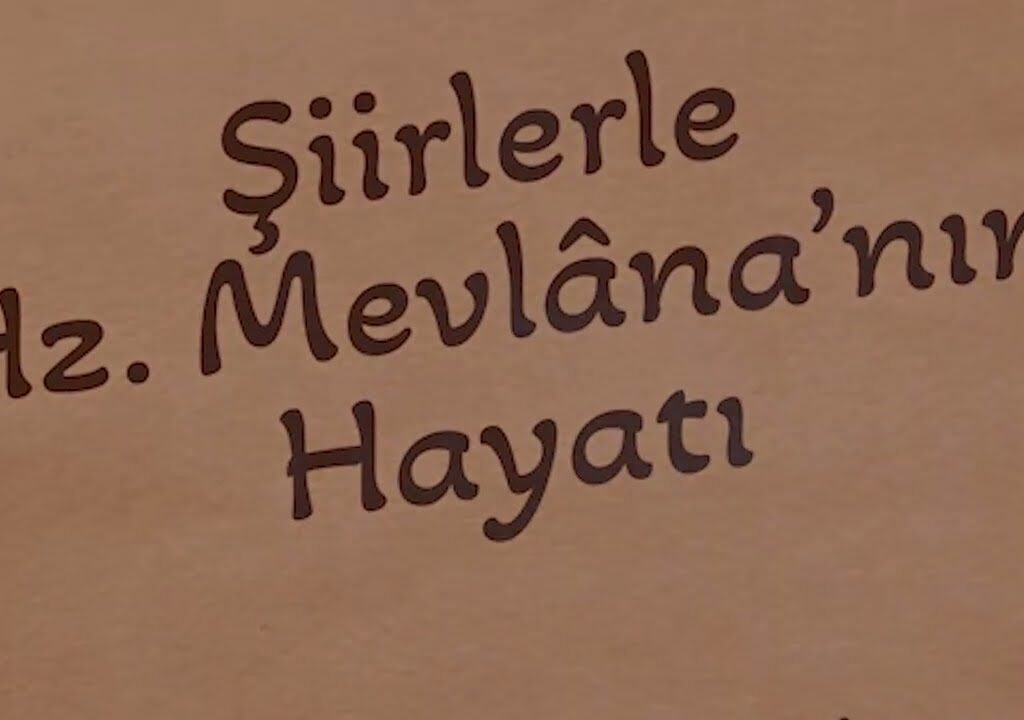 Şiirlerle
Hz. Mevlâna'nın
Hayatı